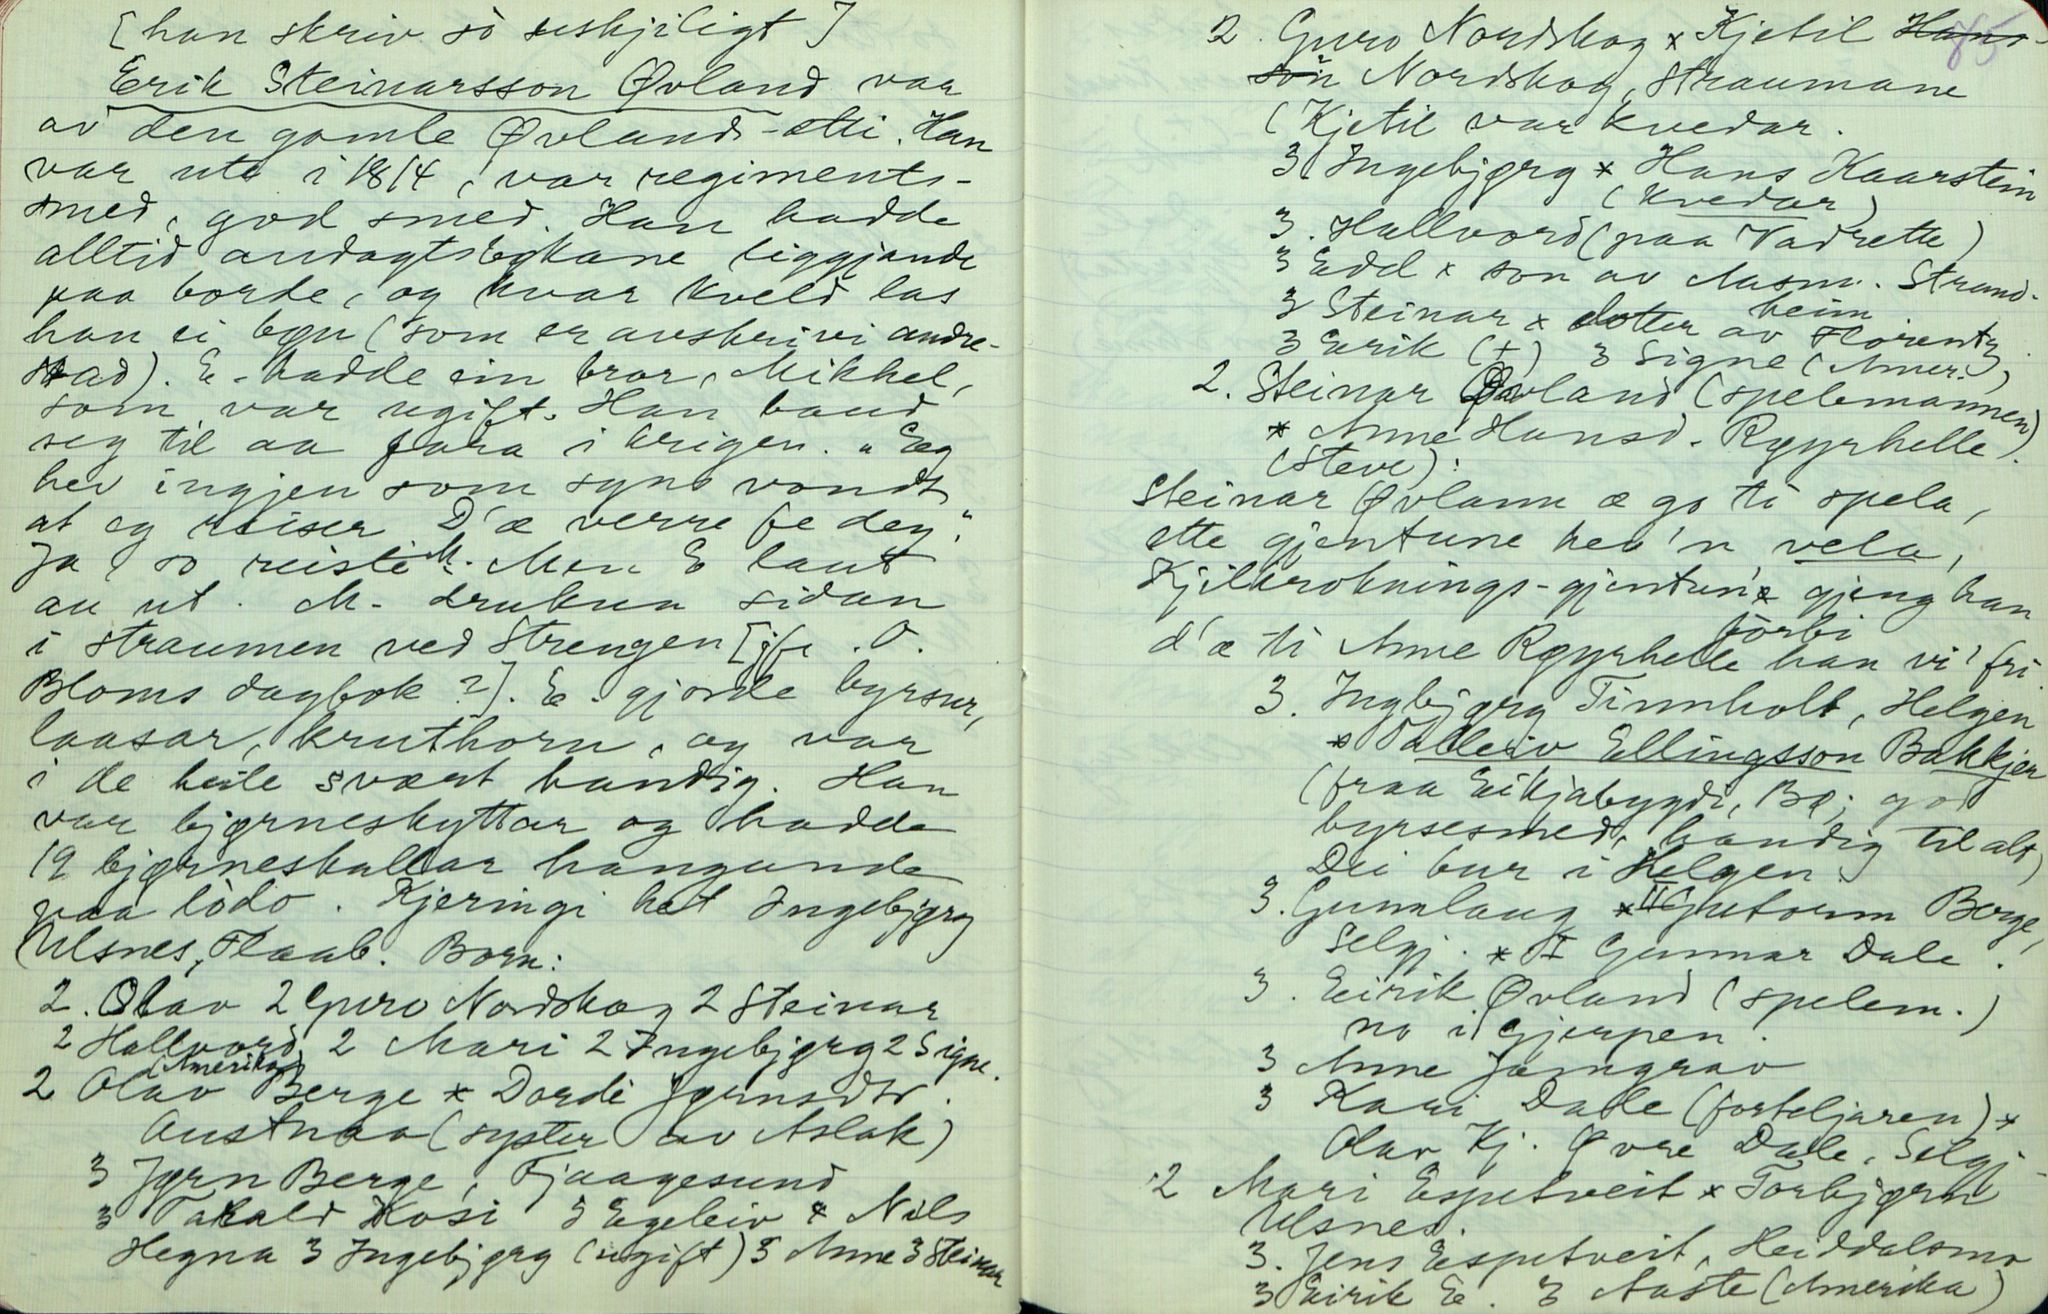 [han skriv so ueskjiligt]
Erik Steinarsson Øvland var
av den gamle Øvlands-ætti. Han
var ute i 1814, var regiments-
smed, god smed. Han hadde
alltid andagtsbøkane liggjande
paa borde, og kvar kveld las
han ei bøn (som er avskrivi andre-
stad). E. hadde ein bror, Mikkel,
som var ugift. Han baud
seg til aa fara i krigen. "Eg
hev ingjen som syns vondt
at eg reiser D'æ verre fe deg".
Ja, so reiste M. Men E laut
au ut. M. drukna sidan
i straumen ved Strengen [jfr. O.
Bloms dagbok?]. E. gjorde byrsur,
laasar, kruthorn, og var
i de heile svært handig. Han
var bjørneskyttar og hadde
19 bjørneskallar hangande
paa lòdo. Kjeringi het Ingebjørg
Ulsnes, Flaab. Born:
2. Olav 2 Guro Nordskog 2 Steinar
2 Hallvord 2 Mari 2 Ingebjørg 2 Signe.
(Amerika)
2 Olav Berge x Dordi Jørnsdtr.
Austnaa (syster av Aslak)
3 Jørn Berge, Fjaagesund
3 Tarald Kosi 3 Egeleiv x Nils
Hegna 3 Ingebjørg (ugift) 3 Anne 3 Steinar
75
2. Guro Nordskog x Kjetil Hans-
son Nordskog, Straumane
(Kjetil var kvedar.
3 Ingebjørg x Hans Kaarstein
(kvedar)
3. Hallvord (paa Vadrette)
3 Edd x son av Aasm. Strand-
heim
3 Steinar x dotter av Florentz.
3 Eirik (+) 3 Signe (Amer.)
2. Steinar Øvland (spelemannen)
x Anne Hansd. Røyrhelle.
(Stev):
Steinar Øvlann æ go ti spela,
ette gjentune hev'n vela,
Kjilkroknings-gjentun'e gjeng han
forbi
d'æ ti Anne Røyrhelle han vi' fri.
3. Ingbjørg Tinnholt, Helgen
x Talleiv Ellingsson Bakkjen
(fraa Eikjabygdi, Bø; god
byrsesmed, handig til alt)
Dei bur i Helgen.
3. Gunnlaug x II Gutorm Berge,
Selgj. x I Gunnar Dale.
3. Eirik Øvland (spelem.)
no i Gjerpen.
3 Anne Jamgrav
3 Kari Dale (forteljaren) x
Olav Kj. Øvre Dale, Selgj.
2 Mari Espetveit x Torbjørn
Ulsnes.
3. Jens Espetveit, Heiddalsmo
3 Eirik E. 3 Aaste (Amerika)